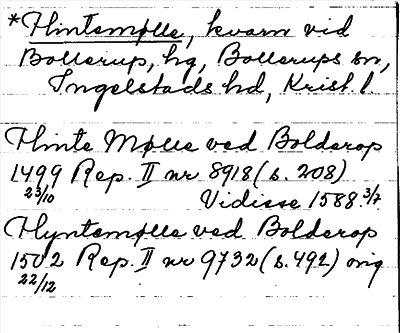 *Flintemølle, kvarn vid
Bollerup, hg, Bollerups sn,
Ingelstads hd, Krist. l.
Flinte Mølle ved Bolderop
1499 Rep. II nr 8918 (s. 208)
23/10 Vidisse 1588 3/7
Flyntemølle ved Bolderop
1502 Rep. II nr 9732 (s. 491) orig
22/12